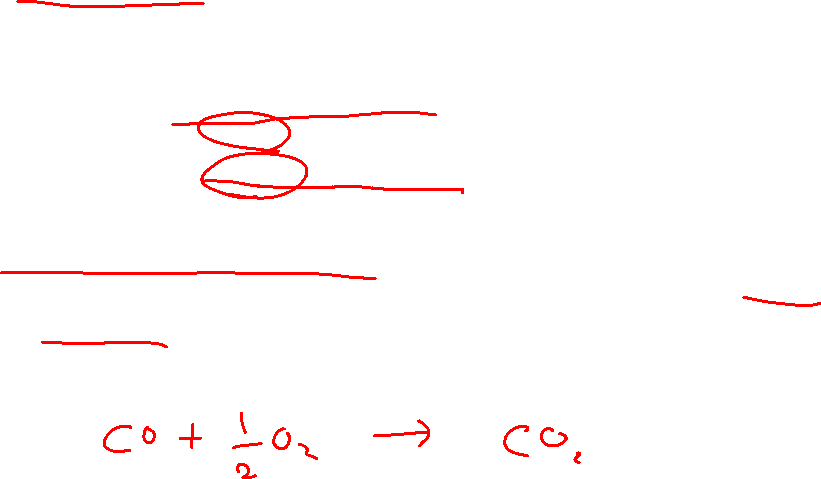 CO + 1/2 O₂ → CO₂